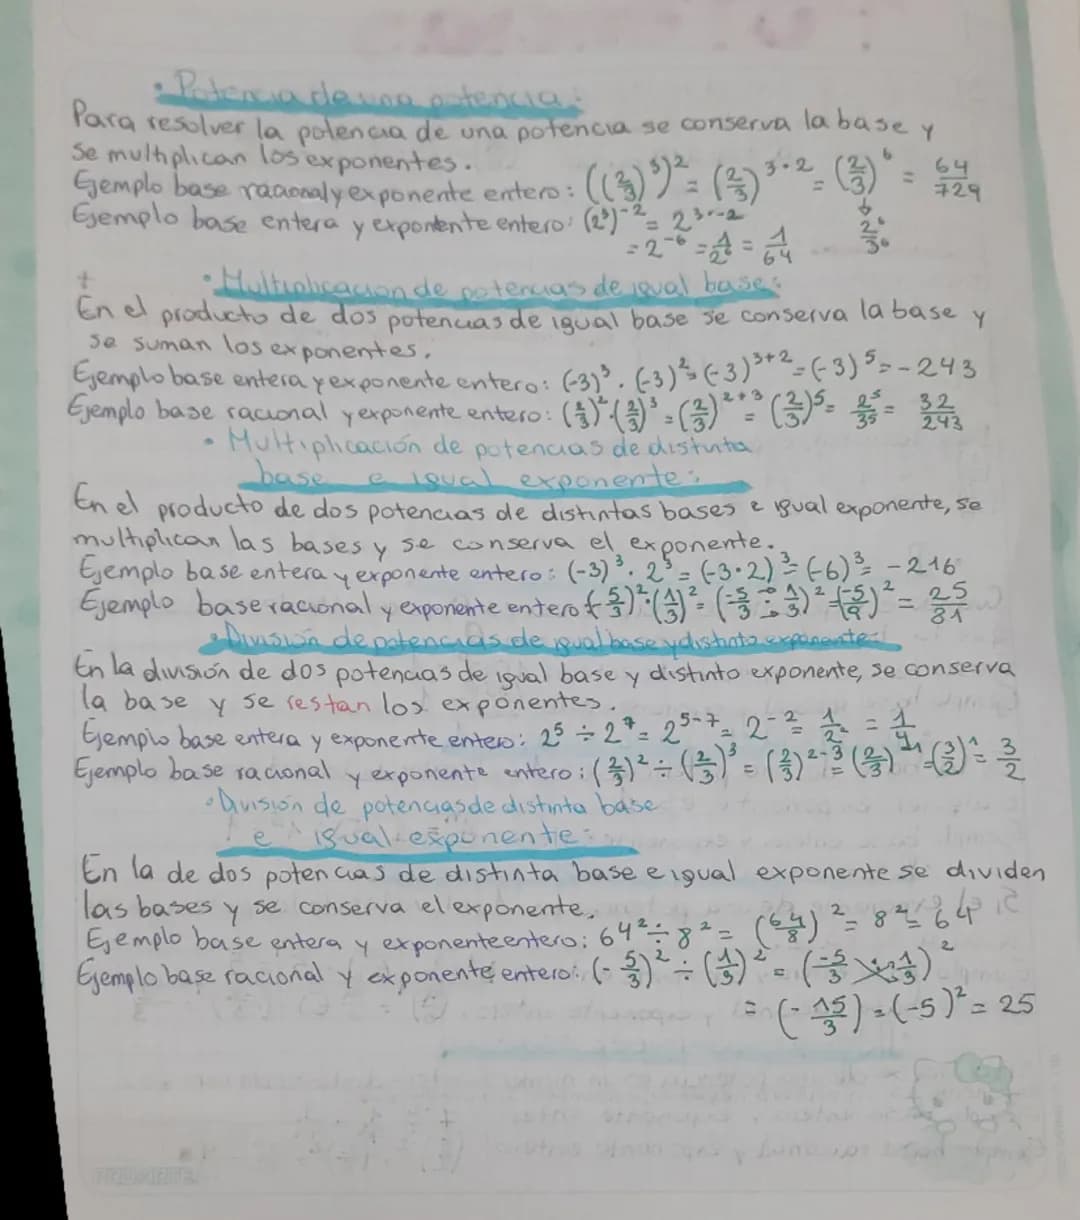 • Potencia de una potencia:
Para resolver la potencia de una potencia se conserva la base y
se multiplican los exponentes.
Ejemplo base racional y exponente entero: ((2/3)³)² = (2/3)³·² = (2/3)⁶ = 64/729
2⁶/3⁶
Ejemplo base entera y exponente entero: (2³)⁻² = 2³·⁻²
= 2⁻⁶ = 1/2⁶ = 1/64
• Multiplicacion de potencias de igual base:
En el producto de dos potencias de igual base se conserva la base y
se suman los exponentes.
Ejemplo base entera y exponente entero: (-3)³ · (-3)² = (-3)³⁺² = (-3)⁵ = -243
Ejemplo base racional y exponente entero: (2/3)² · (2/3)³ = (2/3)²⁺³ = (2/3)⁵ = 2⁵/3⁵ = 32/243
• Multiplicación de potencias de distinta
base e igual exponente:
En el producto de dos potencias de distintas bases e igual exponente, se
multiplican las bases y se conserva el exponente.
Ejemplo base entera y exponente entero: (-3)³ · 2³ = (-3·2)³ = (-6)³ = -216
Ejemplo base racional y exponente entero (-5/3)² · (1/3)² = (-5/3 · 1/3)² = (-5/9)² = 25/81
• División de potencias de igual base y distinto exponente:
En la división de dos potencias de igual base y distinto exponente, se conserva
la base y se restan los exponentes.
Ejemplo base entera y exponente entero: 2⁵ ÷ 2⁷ = 2⁵⁻⁷ = 2⁻² = 1/2² = 1/4
Ejemplo base racional y exponente entero: (2/3)² ÷ (2/3)³ = (2/3)²⁻³ = (2/3)⁻¹ = (3/2)¹ = 3/2
• División de potencias de distinta base
e igual exponente:
En la de dos potencias de distinta base e igual exponente se dividen
las bases y se conserva el exponente.
Ejemplo base entera y exponente entero: 64² ÷ 8² = (64/8)² = 8² = 64
Ejemplo base racional y exponente entero: (-5/3)² ÷ (1/3)² = (-5/3 ÷ 1/3)²
= (-15/3) = (-5)² = 25